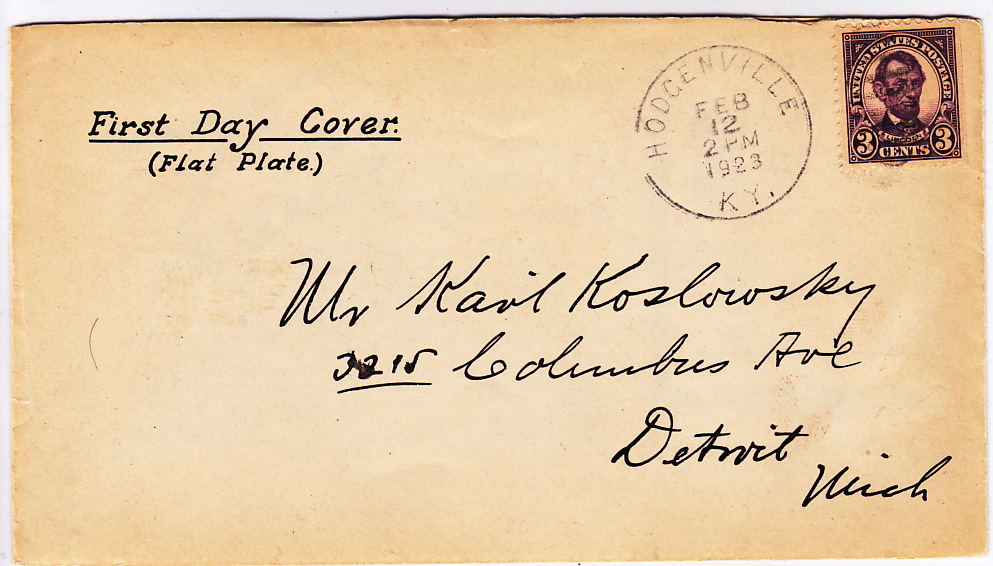 First Day Cover.
(Flat Plate.)
HODGENVILLE
FEB
12
2 PM
1923
KY.
UNITED STATES POSTAGE
LINCOLN
3 CENTS 3
Mr Karl Koslowsky
3215 Columbus Ave
Detroit
Mich